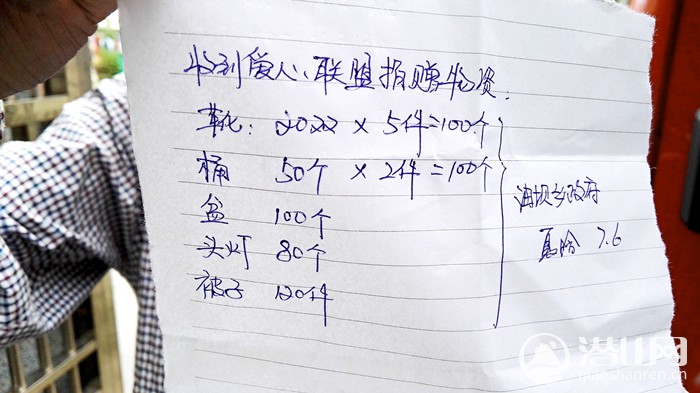 收到爱心联盟捐赠物资:
靴: 20双 × 5件=100个
桶 50个 × 2件=100个
盆 100个
头灯 80个
被子 120件
油坝乡政府
7.6
潜山网
qianshanren.cn